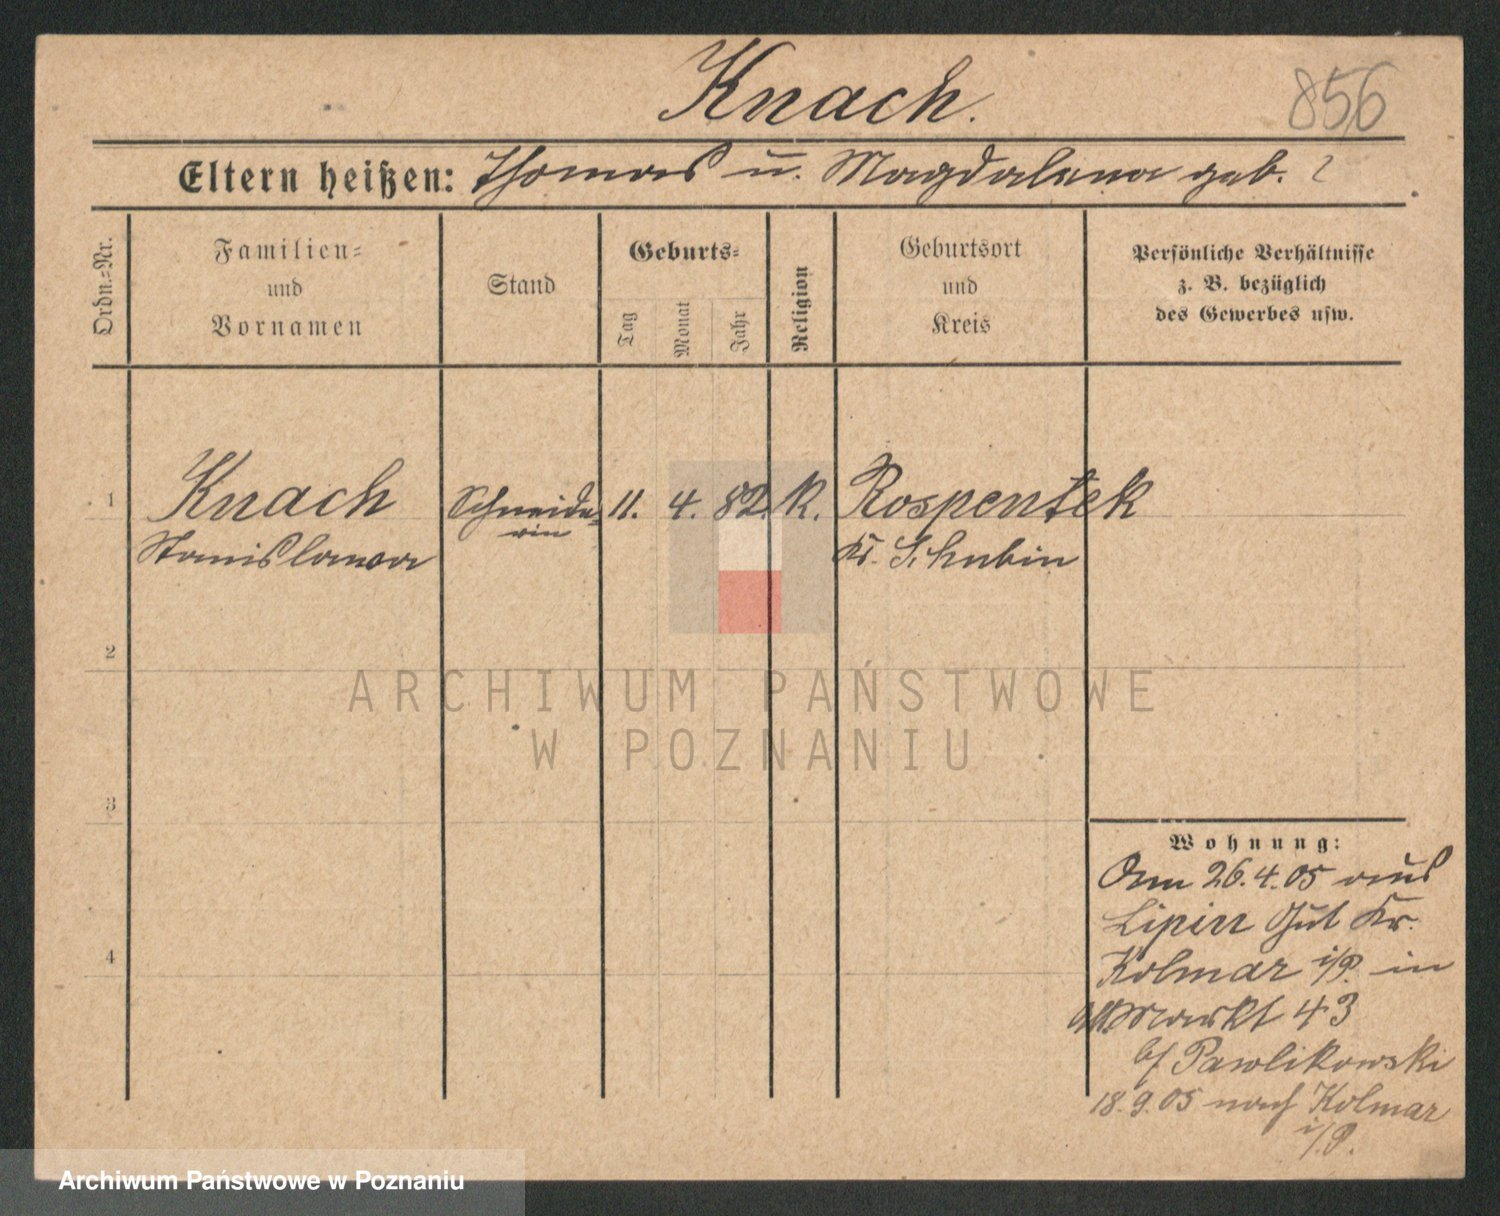 Knach.
856
Eltern heißen: Thomas u. Magdalena geb. ?
Ordn.-Nr.
Familien-
und
Vornamen
Stand
Geburts-
Tag
Monat
Jahr
Religion
Geburtsort
und
Kreis
Persönliche Verhältnisse
z. B. bezüglich
des Gewerbes usw.
1 Knach Schneide- 11. 4. 82. K. Rospentek
Stanislawa rin Kr. Schubin
2
ARCHIWUM PAŃSTWOWE
W POZNANIU
3
Wohnung:
Am 26.4.05 aus
Lipin Gut Kr.
4
Kolmar i/P. in
Alt Markt 43
b/ Pawlikowski
18.9.05 nach Kolmar
i/P.
Archiwum Państwowe w Poznaniu